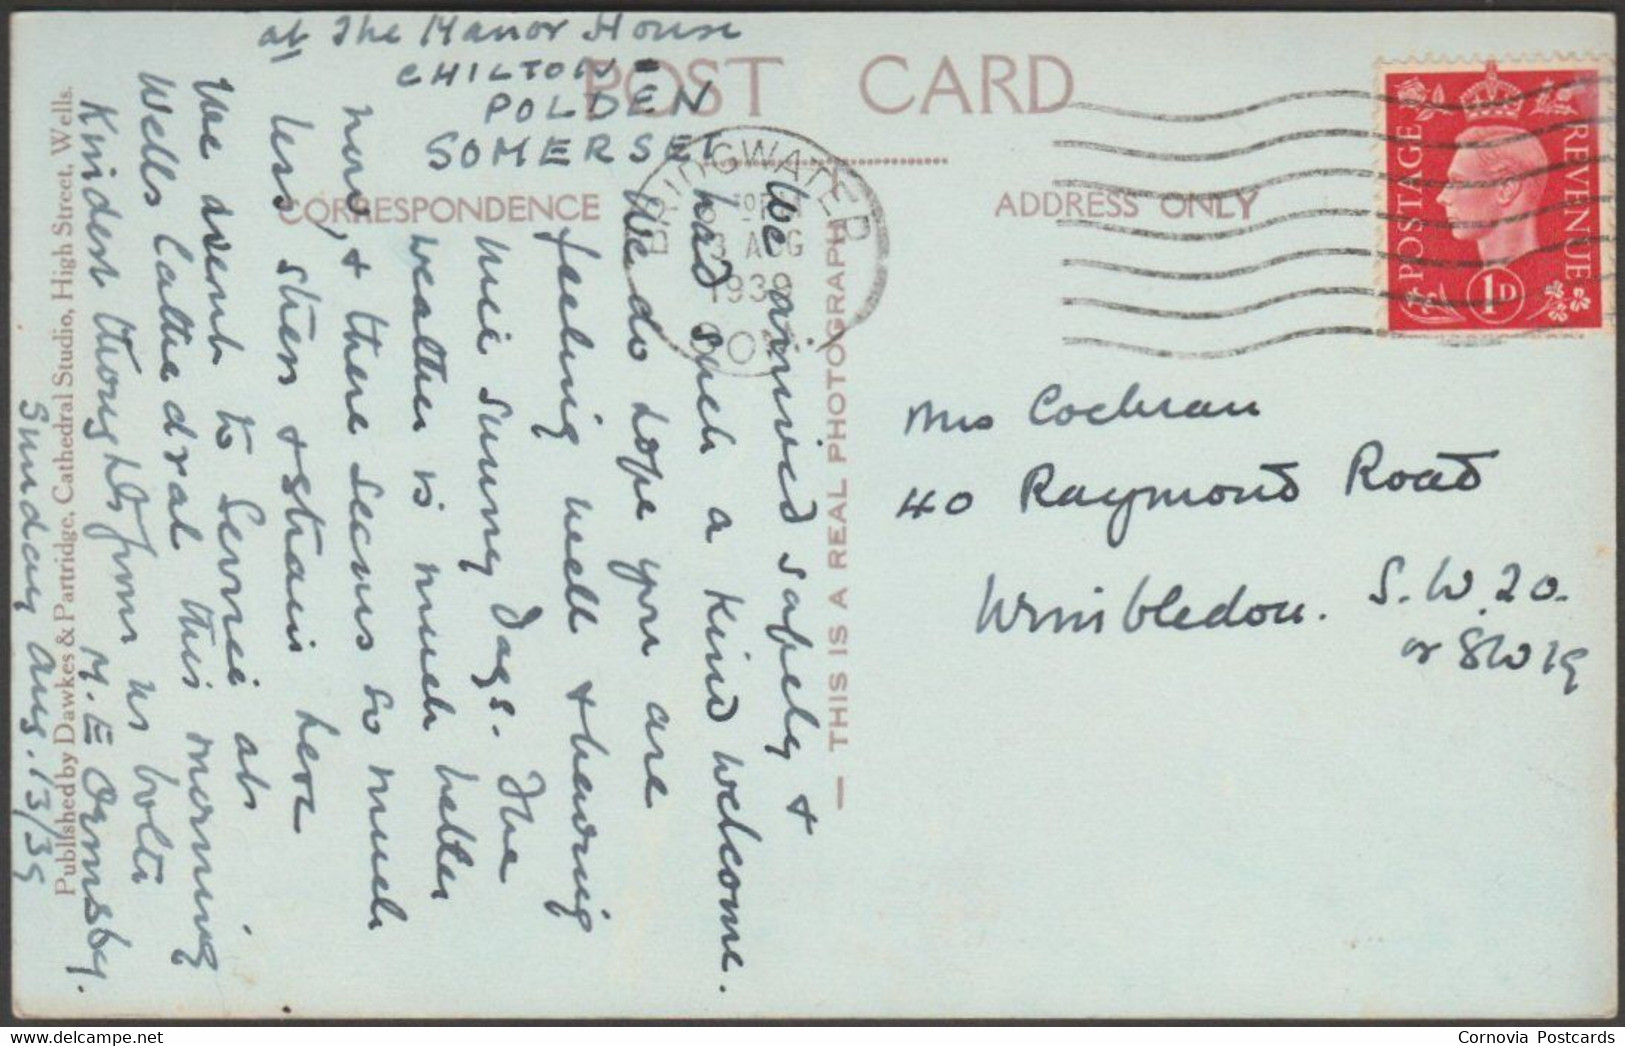 at The Manor House
CHILTON-
POLDEN
SOMERSET
POST CARD
CORRESPONDENCE
ADDRESS ONLY
BRIDGWATER
13 AUG
1939
POSTAGE
REVENUE
1D
We arrived safely +
had such a kind welcome.
We do hope you are
feeling well & having
nice sunny days. The
weather is much better
now, & there seems so much
less stress & strain here
We went to Service at
Wells Cathedral this morning
Kindest thoughts from us both
M. E Ormsby.
Sunday Aug. 13/39
Mrs Cochran
40 Raymond Road
Wimbledon. S.W.20.
or SW19
— THIS IS A REAL PHOTOGRAPH —
Published by Dawkes & Partridge, Cathedral Studio, High Street, Wells.
Cornovia Postcards